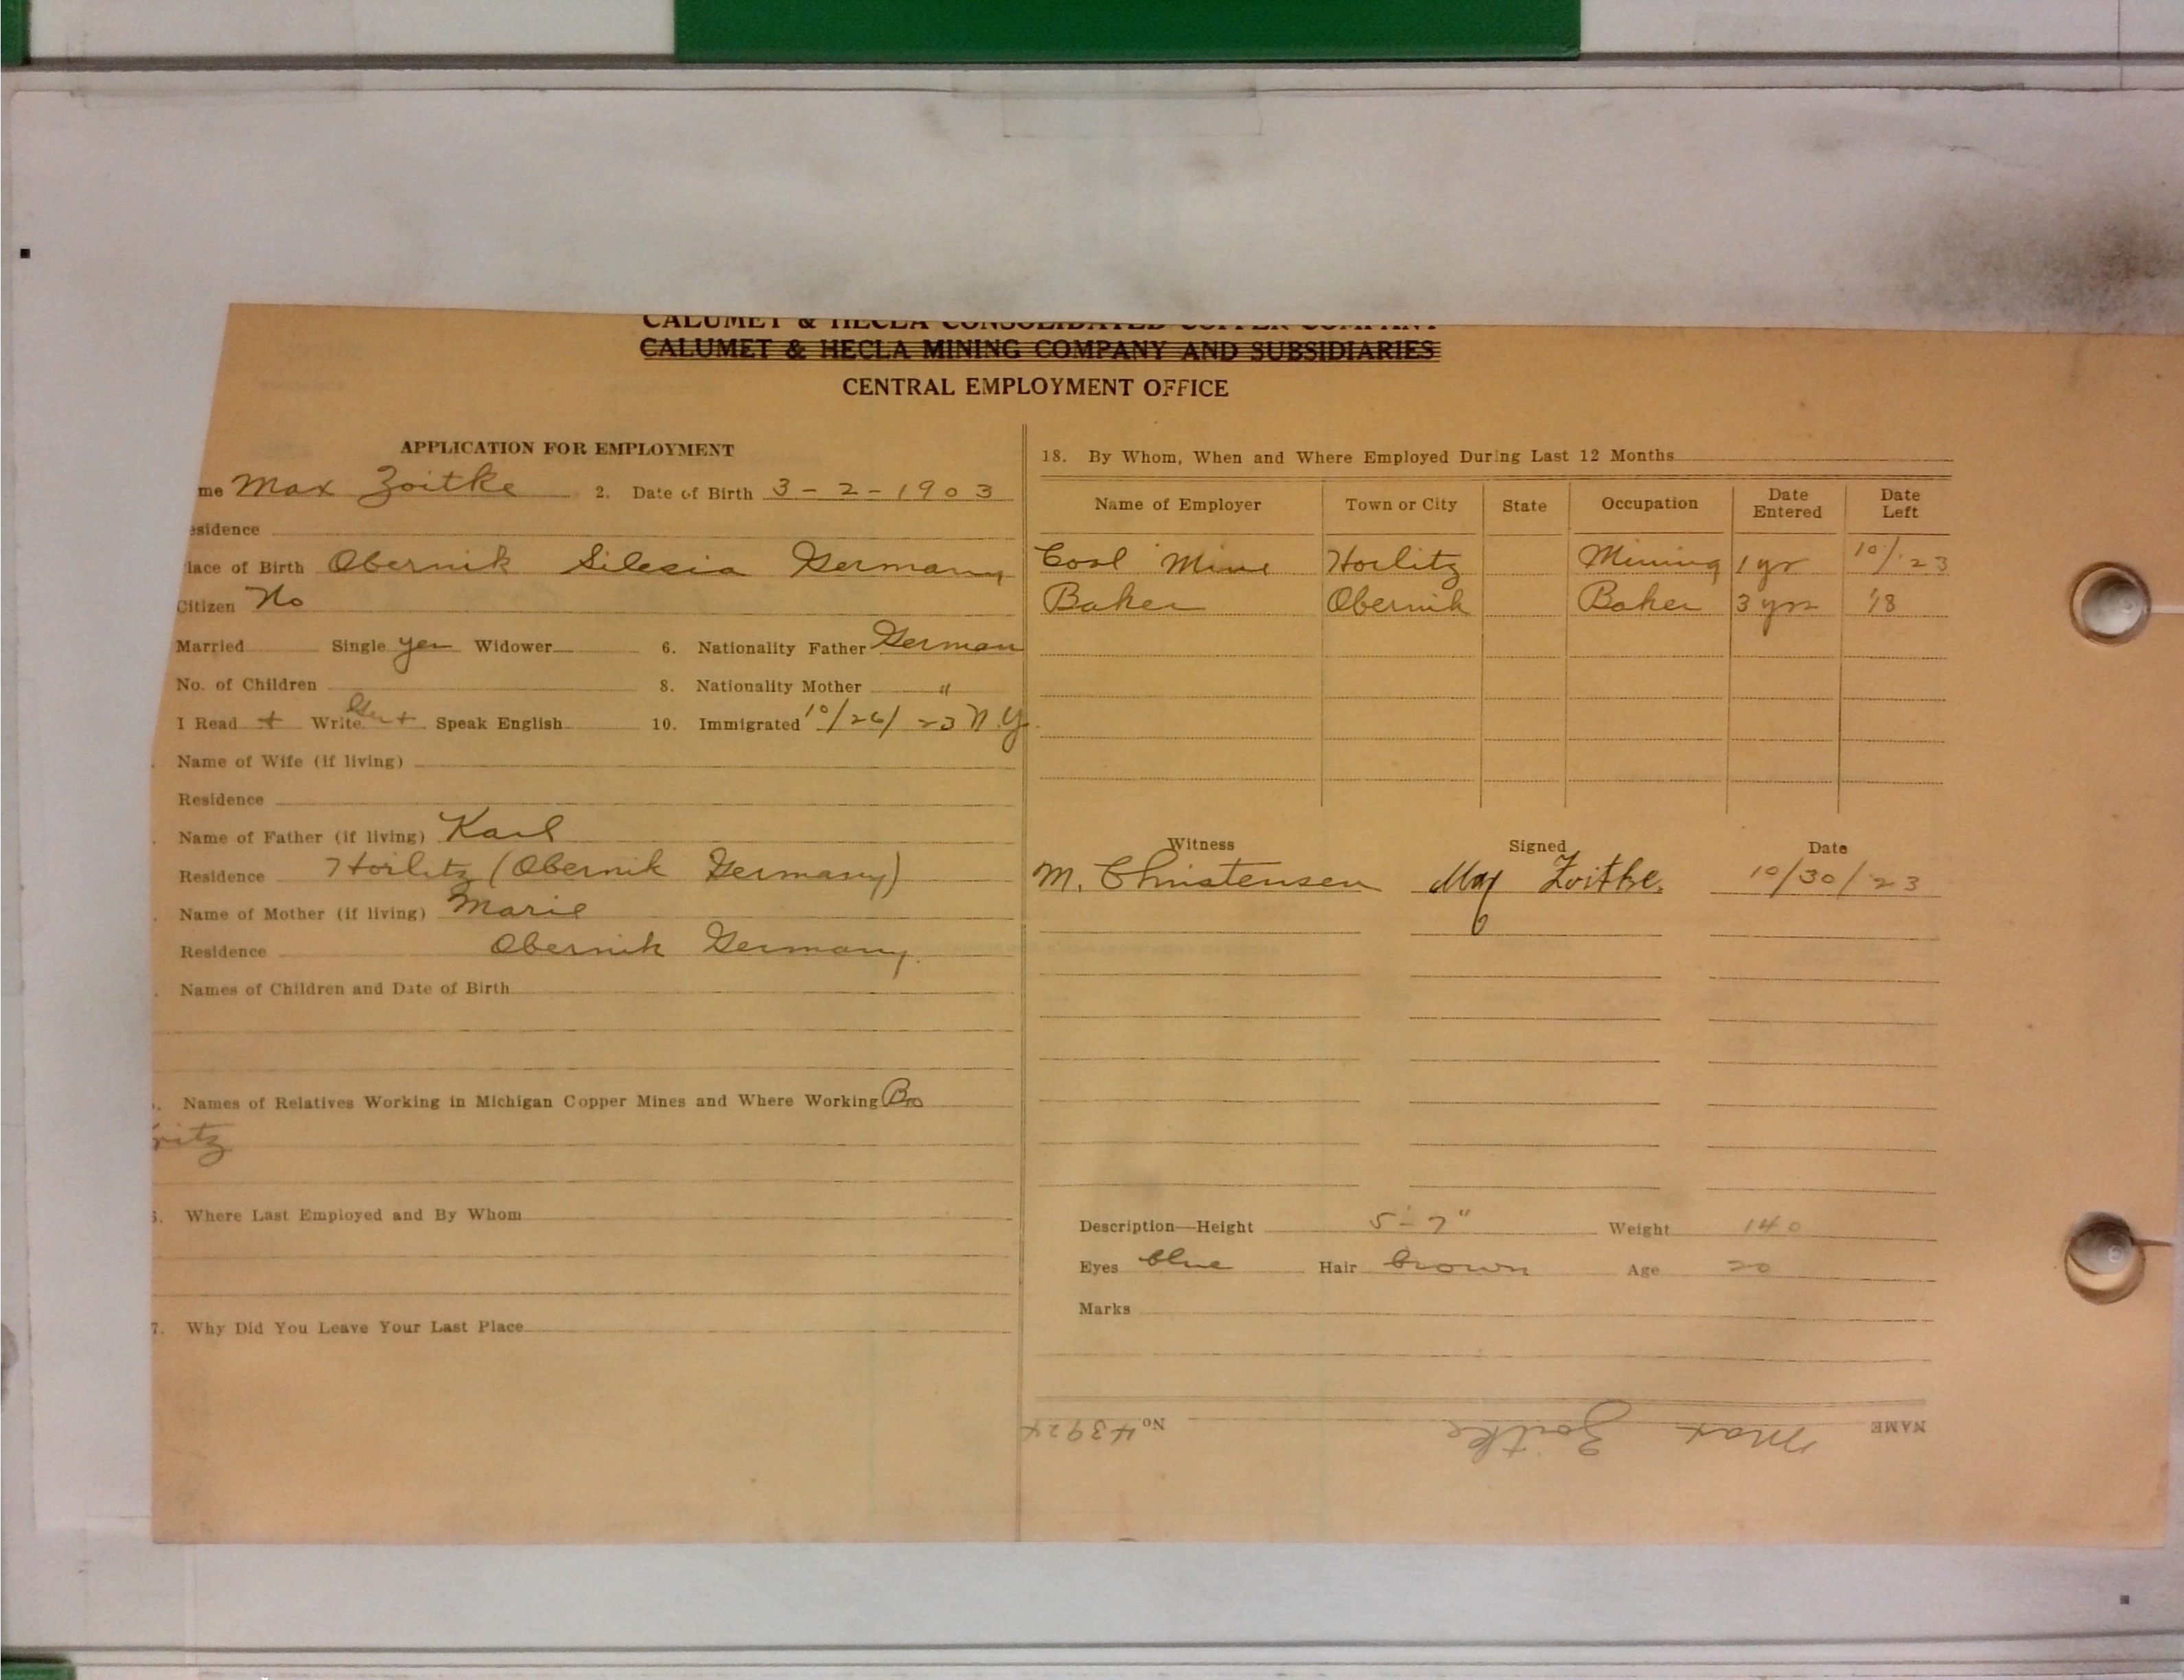 CALUMET & HECLA CONSOLIDATED COPPER COMPANY
CALUMET & HECLA MINING COMPANY AND SUBSIDIARIES
CENTRAL EMPLOYMENT OFFICE
APPLICATION FOR EMPLOYMENT
me Max Zoitke 2. Date of Birth 3-2-1903
esidence
lace of Birth Obernik Silesia Germany
Citizen No
Married Single yes Widower 6. Nationality Father German
No. of Children 8. Nationality Mother "
I Read + Write Ger + Speak English 10. Immigrated 10/26/23 N.Y.
Name of Wife (if living)
Residence
Name of Father (if living) Karl
Residence Horlitz (Obernik Germany)
Name of Mother (if living) Marie
Residence Obernik Germany.
Names of Children and Date of Birth
. Names of Relatives Working in Michigan Copper Mines and Where Working Bro
ritz
. Where Last Employed and By Whom
7. Why Did You Leave Your Last Place
18. By Whom, When and Where Employed During Last 12 Months
Name of Employer Town or City State Occupation Date Entered Date Left
Coal Mine Horlitz Mining 1 yr 10/23
Baker Obernik Baker 3 yrs '18
Witness Signed Date
M. Christensen Max Zoitke. 10/30/23
Description—Height 5'-7" Weight 140
Eyes blue Hair brown Age 20
Marks
NAME Max Zoitke No. 43924